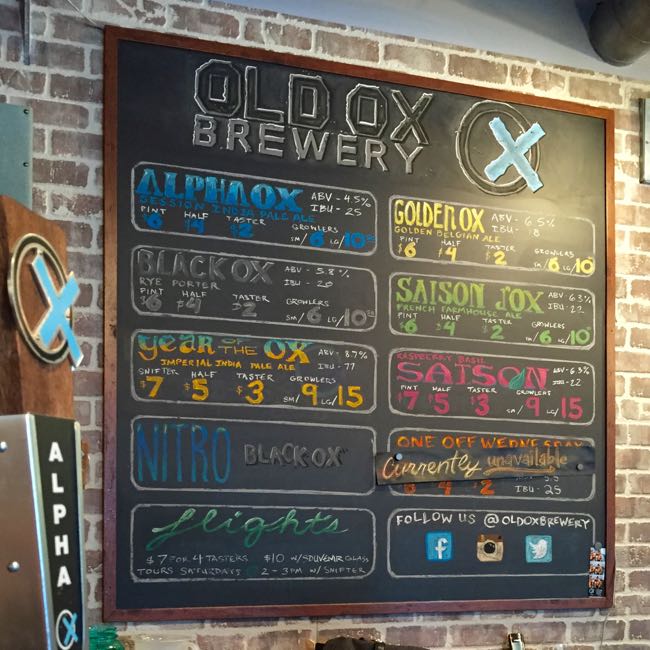 OLD OX
BREWERY
ALPHA OX
SESSION INDIA PALE ALE
ABV - 4.5%
IBU - 25
PINT HALF TASTER GROWLERS
$6 $4 $2 SM/6 LG/10
BLACK OX
RYE PORTER
ABV - 5.8%
IBU - 20
PINT HALF TASTER GROWLERS
$6 $4 $2 SM/6 LG/10
YEAR OF THE OX
IMPERIAL INDIA PALE ALE
ABV - 8.7%
IBU - 77
SNIFTER HALF TASTER GROWLERS
$7 $5 $3 SM/9 LG/15
NITRO BLACK OX
flights
$7 FOR 4 TASTERS $10 W/SOUVENIR GLASS
TOURS SATURDAYS 2-3PM W/ SNIFTER
GOLDEN OX
GOLDEN BELGIAN ALE
ABV - 6.5%
IBU - 8
PINT HALF TASTER GROWLERS
$6 $4 $2 SM/6 LG/10
SAISON D'OX
FRENCH FARMHOUSE ALE
ABV - 6.3%
IBU - 22
PINT HALF TASTER GROWLERS
$6 $4 $2 SM/6 LG/10
RASPBERRY BASIL
SAISON
ABV - 6.3%
IBU - 22
PINT HALF TASTER GROWLERS
$7 $5 $3 SM/9 LG/15
ONE OFF WEDNESDAY
Currently unavailable
4 $2
IBU - 25
FOLLOW US @OLDOXBREWERY
ALPHA